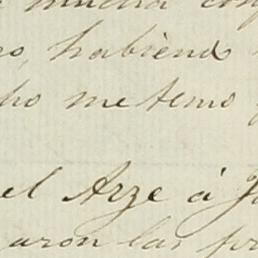 mucha con
o, habiend
ho me temo
el Arze á J
aron las pr